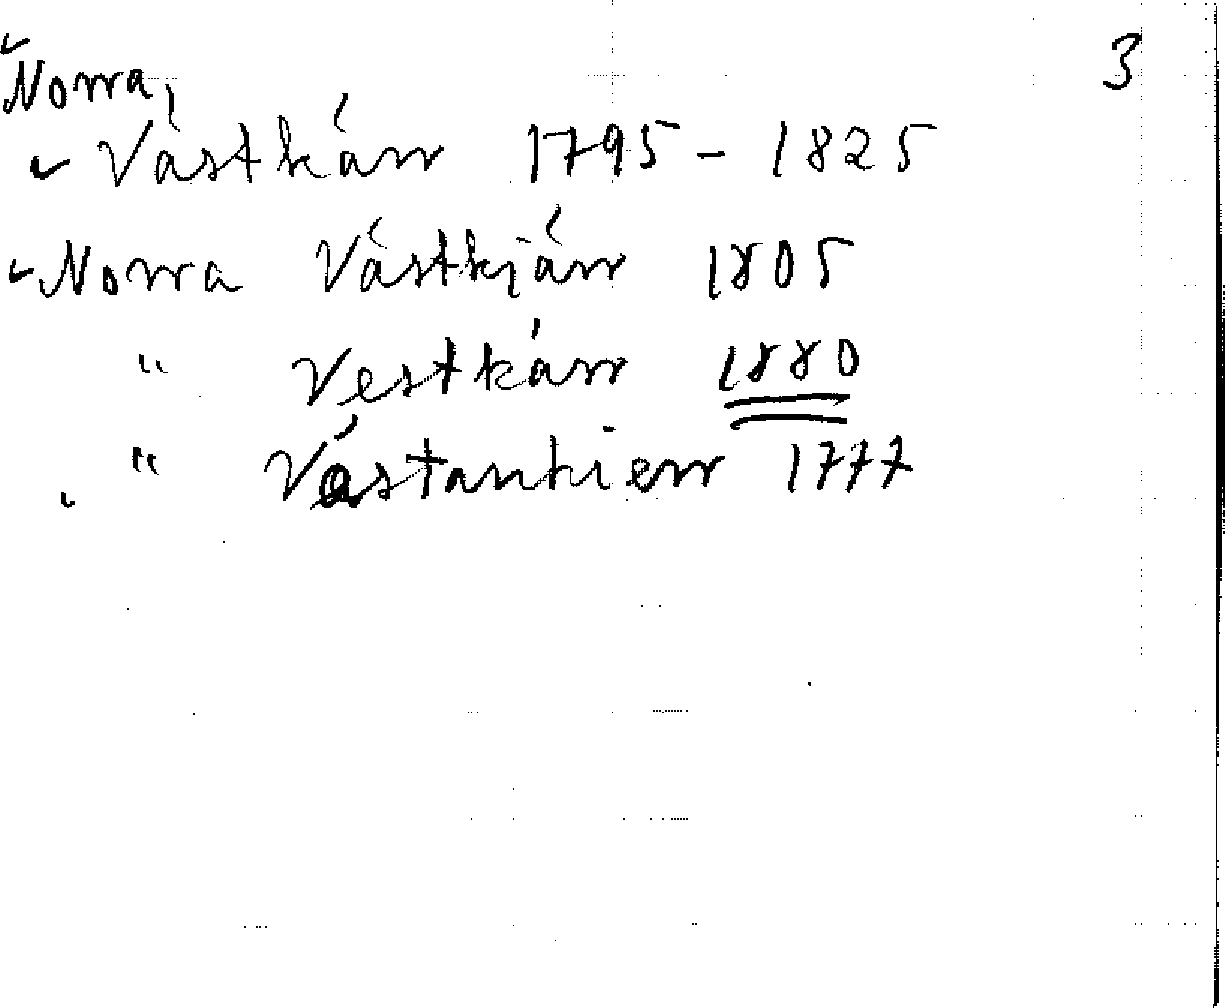 Norra 3
Västkärr 1795 - 1825
Norra Västkjärr 1805
" Vestkärr 1880
" Västankierr 1777